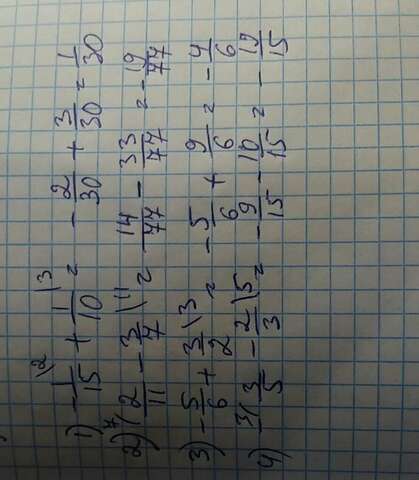 1) -1/15 \2 + 1/10 \3 = -2/30 + 3/30 = 1/30
2) 7/ 2/11 - 3/7 \11 = 14/77 - 33/77 = -19/77
3) -5/6 + 3/2 \3 = -5/6 + 9/6 = -4/6
4) 3/ 3/5 - 2/3 \5 = -9/15 - 10/15 = -19/15